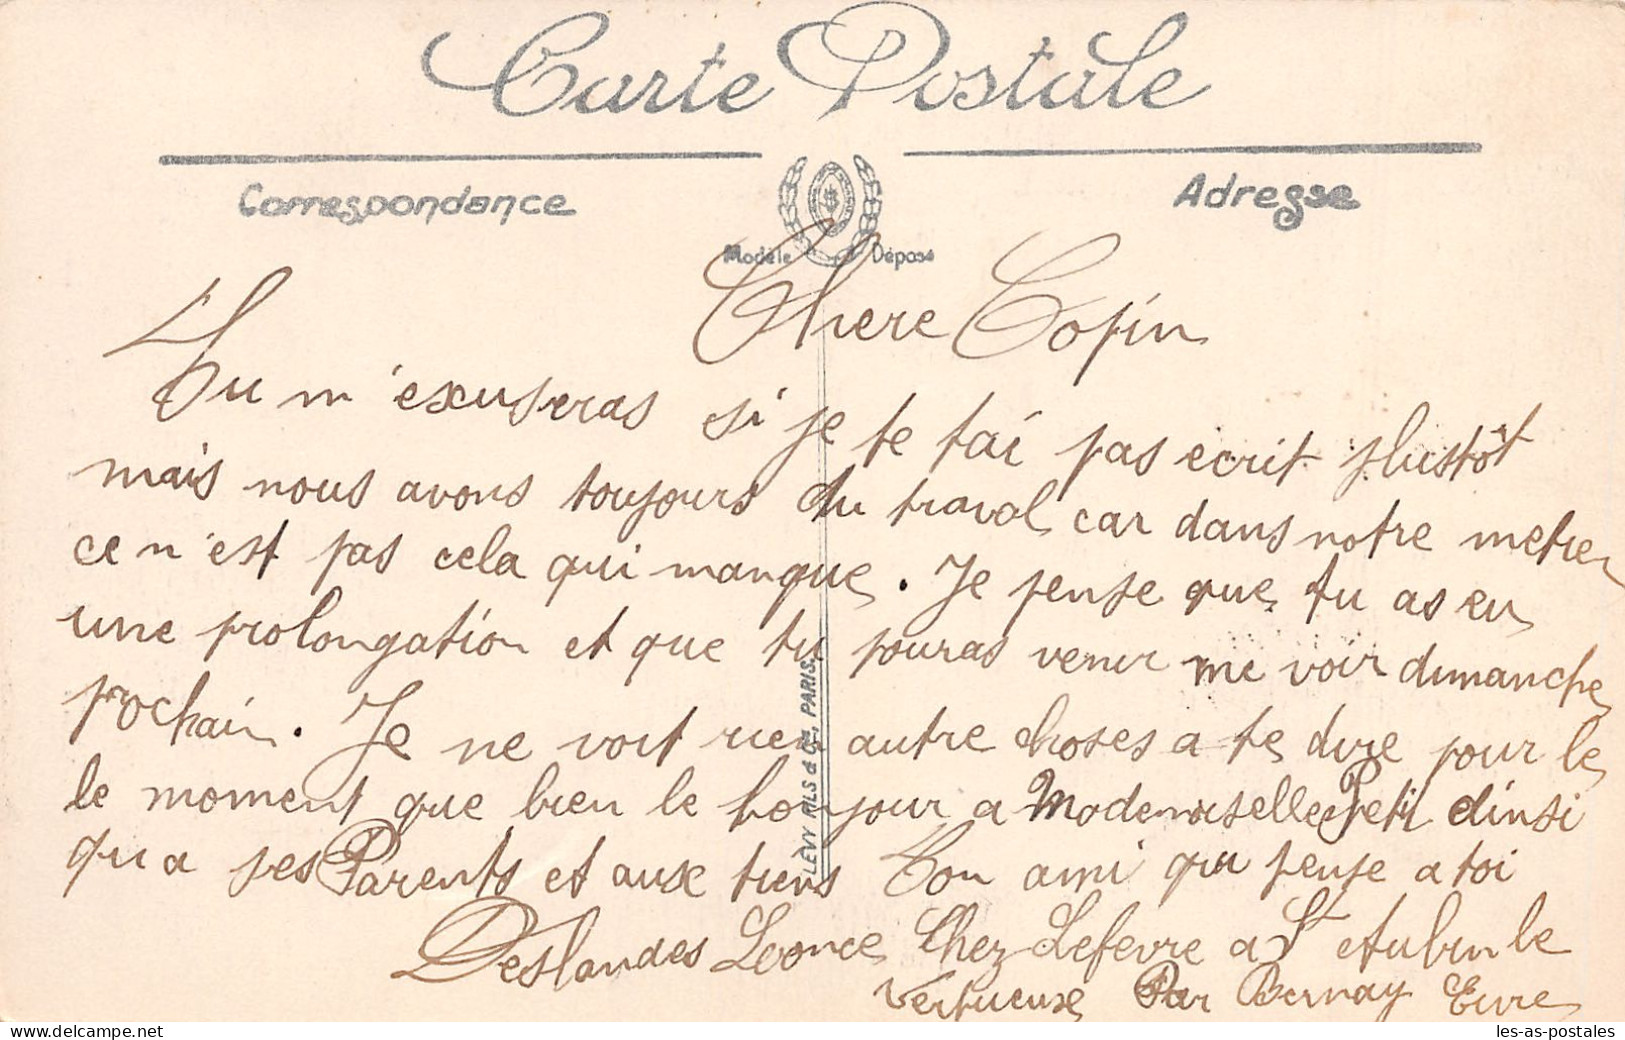 Carte Postale
Correspondance
Adresse
Modèle Déposé
Chere Copin
Tu m'exuseras si je te tai pas ecrit plustôt
mais nous avons toujours du traval car dans notre metier
ce n'est pas cela qui manque. Je pense que tu as eu
une prolongation et que tu pouras venir me voir dimanche
prochain. Je ne voit rien autre choses a te dire pour le
le moment que bien le bonjour a Mademoiselle Peti dinsi
qu a ses Parents et aux tiens Ton ami qui pense a toi
Deslandes Leonce Chez Lefevre a St Aubin le
Vertueux Par Bernay Eure
LÉVY FILS & Cie, PARIS.
les-as-postales
https://www.delcampe.net